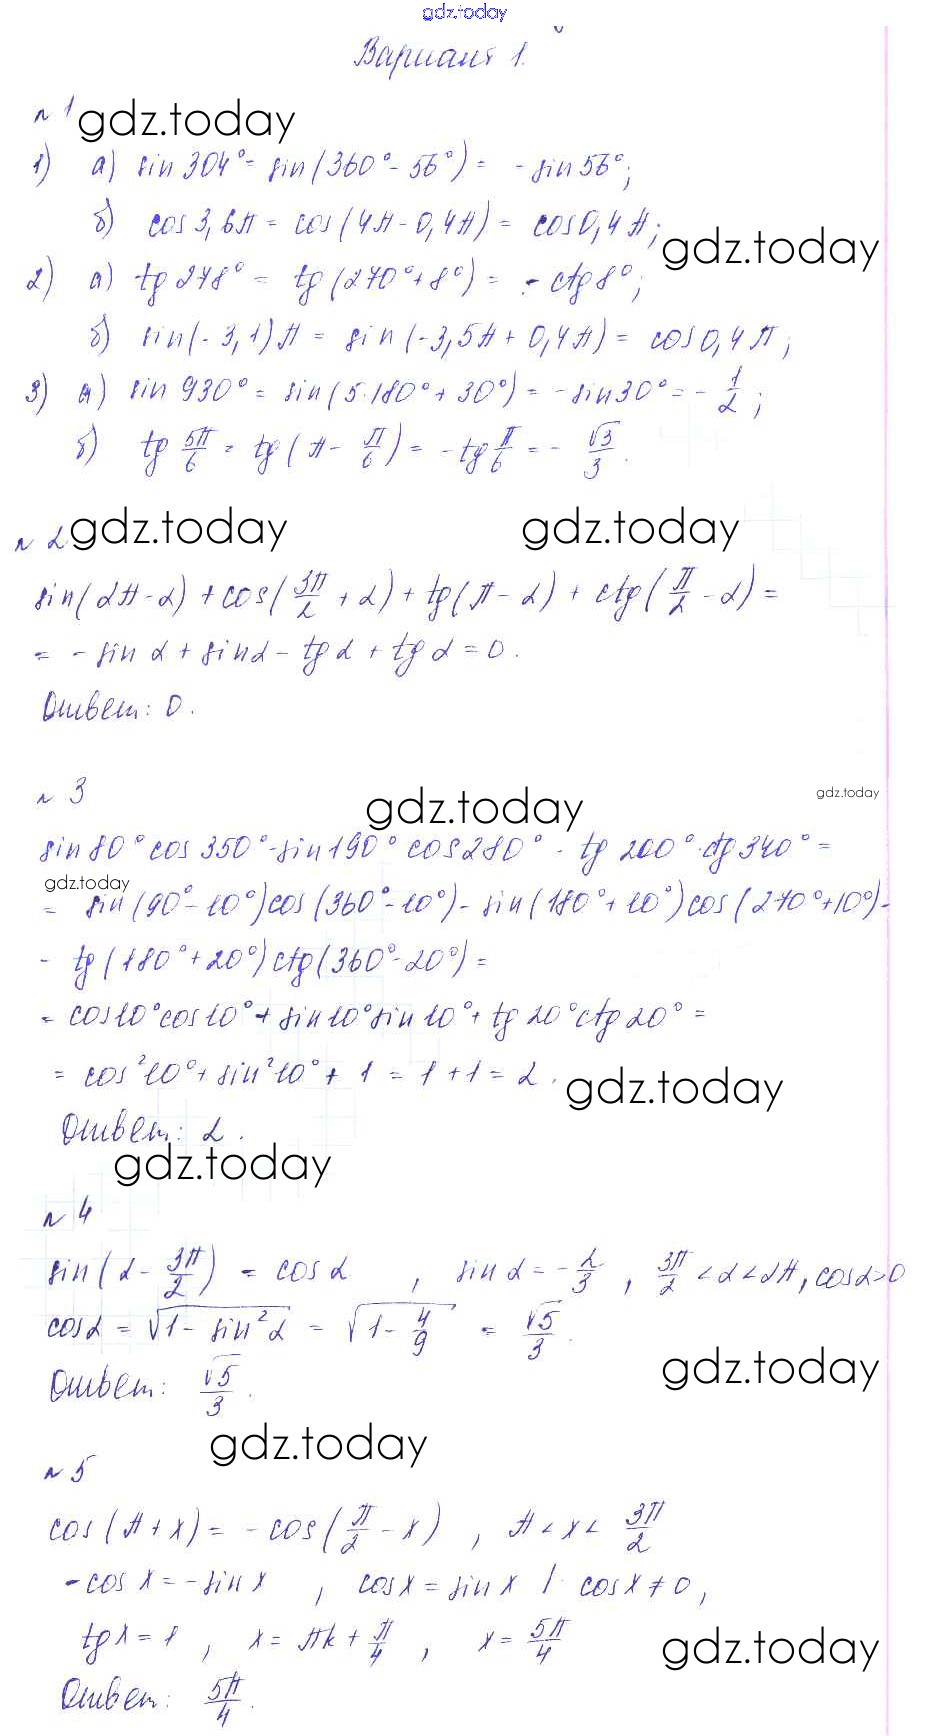 gdz.today
Вариант 1.
№ 1 gdz.today
1) а) sin 304° = sin(360° - 56°) = - sin 56°;
б) cos 3,6π = cos(4π - 0,4π) = cos 0,4π; gdz.today
2) а) tg 278° = tg(270° + 8°) = - ctg 8°;
б) sin(-3,1)π = sin(-3,5π + 0,4π) = cos 0,4π;
3) а) sin 930° = sin(5·180° + 30°) = - sin 30° = - 1/2;
б) tg 5π/6 = tg(π - π/6) = - tg π/6 = - √3/3.
№ 2 gdz.today gdz.today
sin(2π - α) + cos(3π/2 + α) + tg(π - α) + ctg(π/2 - α) =
= - sin α + sin α - tg α + tg α = 0.
Ответ: 0.
№ 3 gdz.today gdz.today
sin 80° cos 350° - sin 190° cos 280° - tg 200° · ctg 340° =
gdz.today
= sin(90° - 10°) cos(360° - 10°) - sin(180° + 10°) cos(270° + 10°) -
- tg(180° + 20°) ctg(360° - 20°) =
= cos 10° cos 10° + sin 10° sin 10° + tg 20° ctg 20° =
= cos² 10° + sin² 10° + 1 = 1 + 1 = 2. gdz.today
Ответ: 2.
gdz.today
№ 4
sin(α - 3π/2) = cos α, sin α = - 2/3, 3π/2 < α < 2π, cos α > 0
cos α = √(1 - sin² α) = √(1 - 4/9) = √5/3.
gdz.today
Ответ: √5/3.
gdz.today
№ 5
cos(π + x) = - cos(π/2 - x), π < x < 3π/2
- cos x = - sin x, cos x = sin x | cos x ≠ 0,
tg x = 1, x = πk + π/4, x = 5π/4 gdz.today
Ответ: 5π/4.